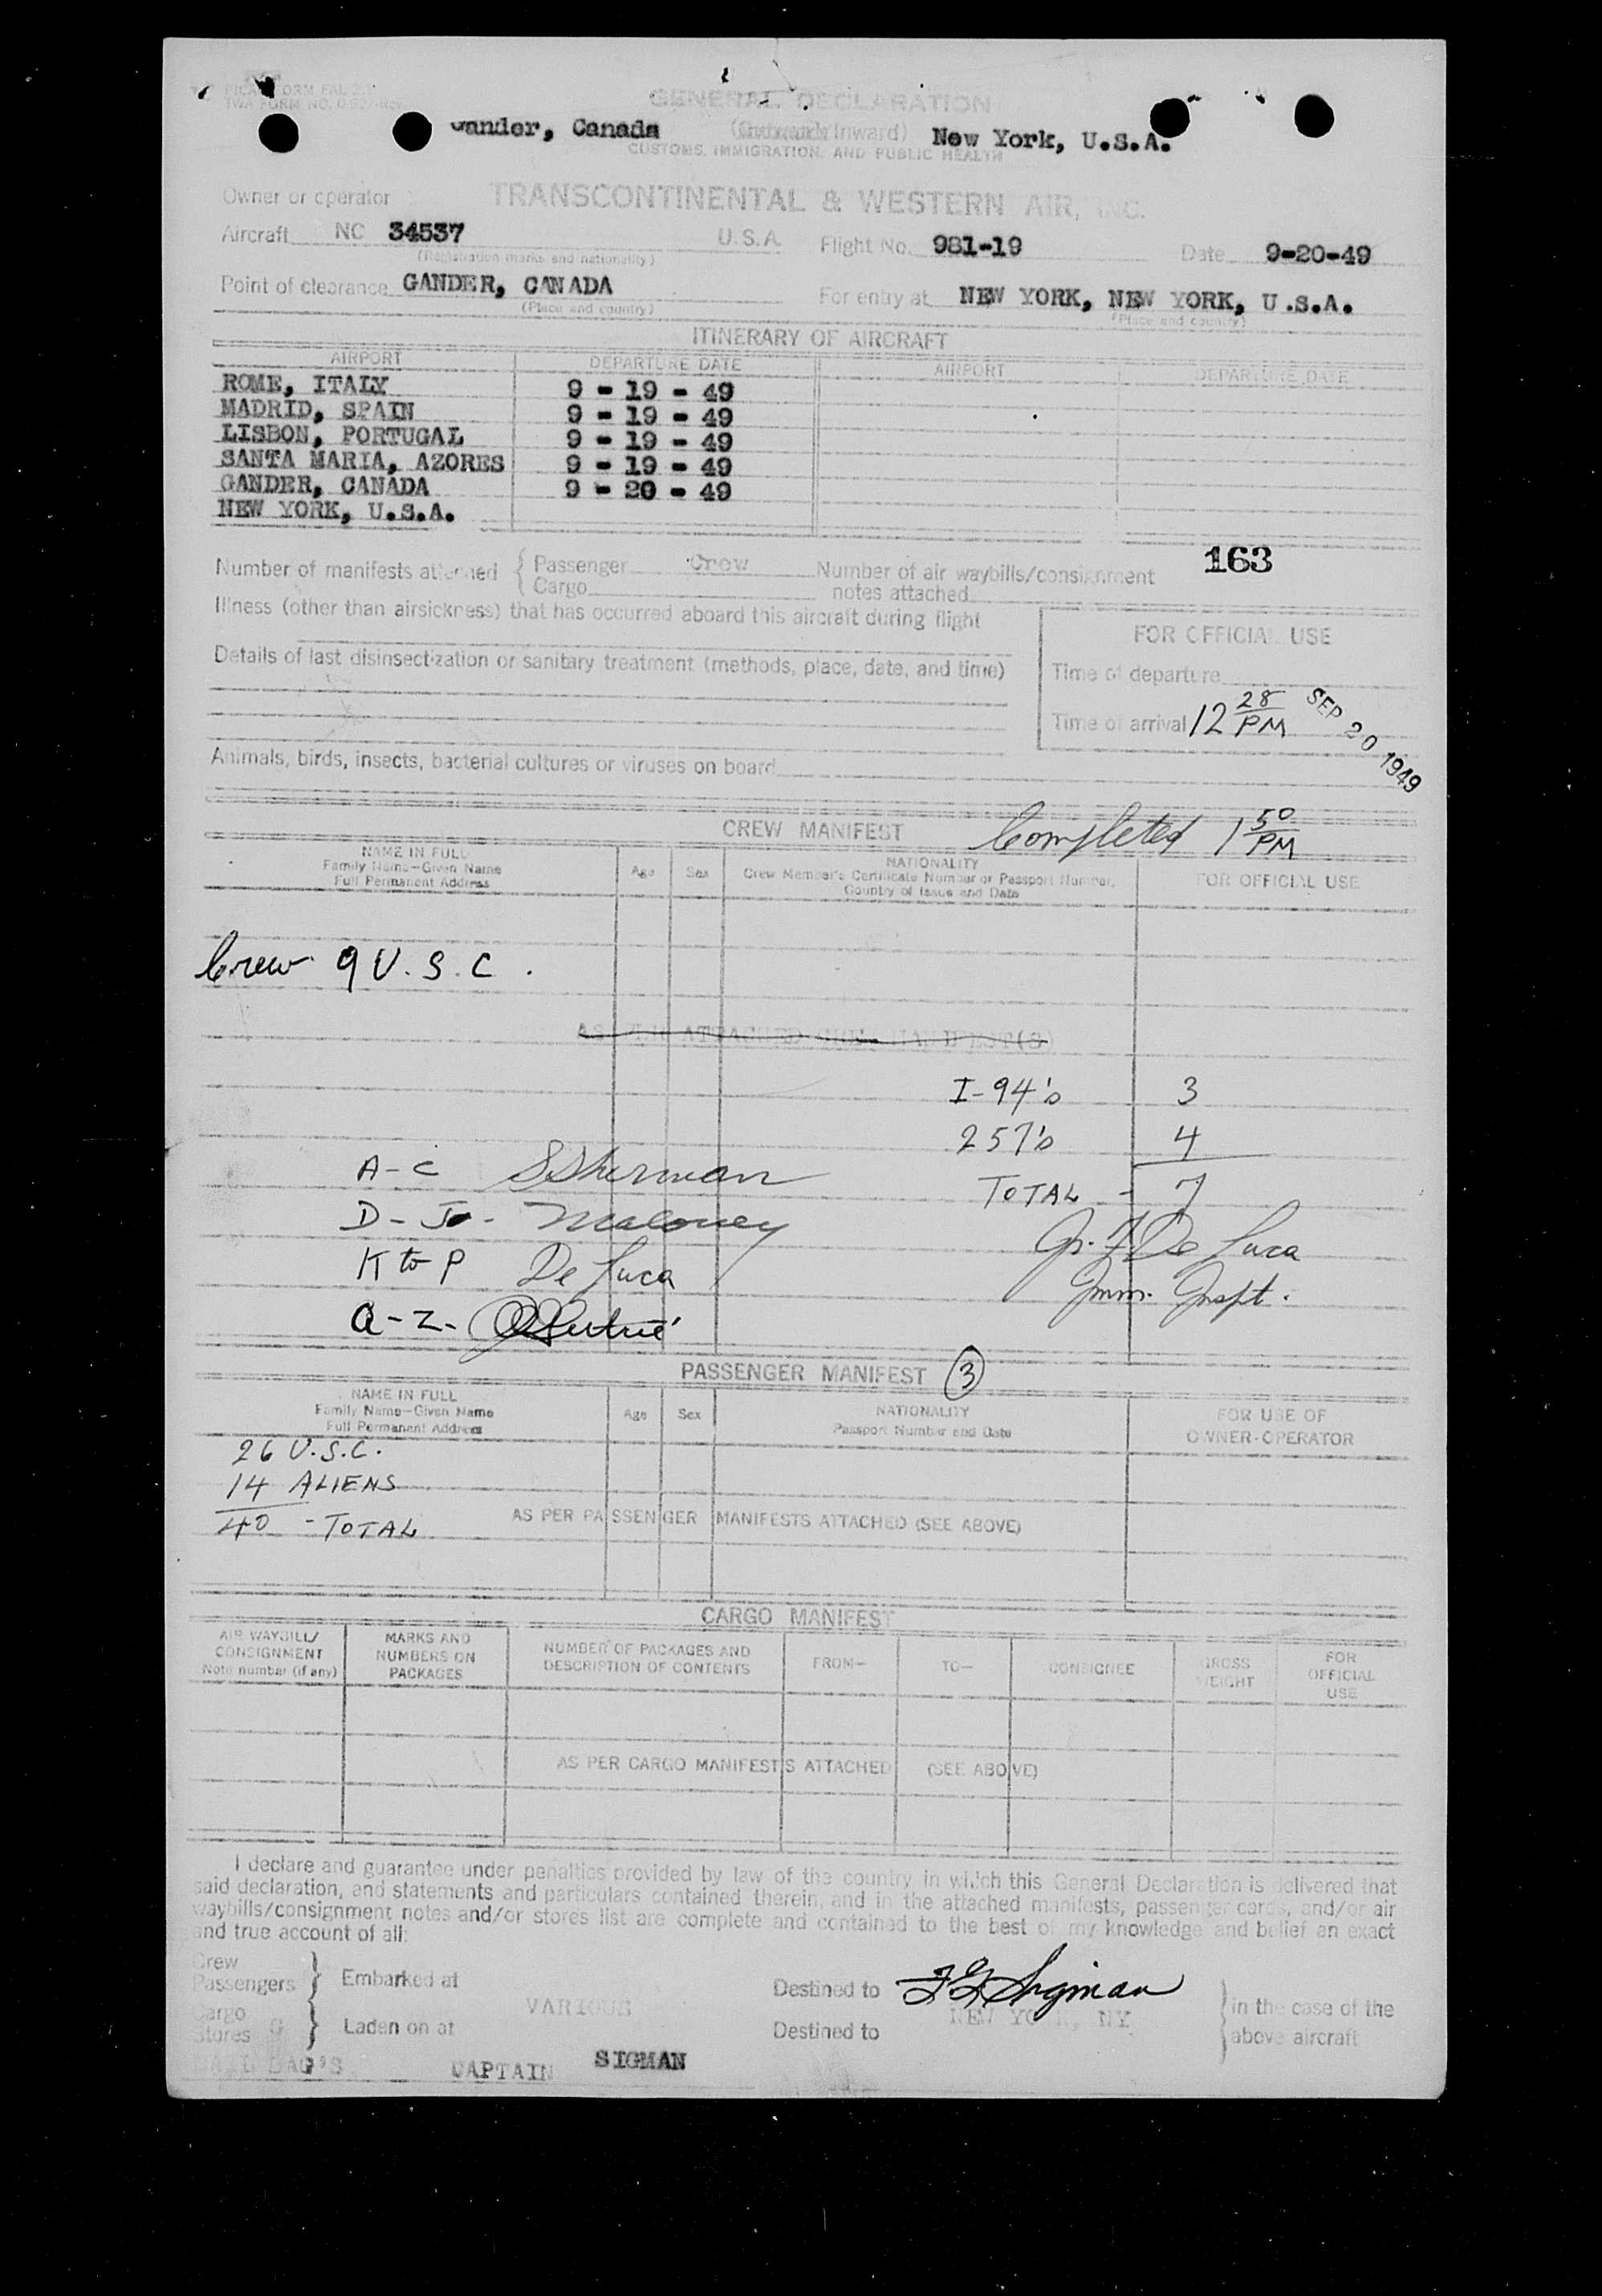 GENERAL DECLARATION
Gander, Canada (Outwards/Inward) New York, U.S.A.
CUSTOMS, IMMIGRATION, AND PUBLIC HEALTH
Owner or operator TRANSCONTINENTAL & WESTERN AIR, INC.
Aircraft NC 34537 U.S.A. Flight No. 981-19 Date 9-20-49
(Registration marks and nationality)
Point of clearance GANDER, CANADA For entry at NEW YORK, NEW YORK, U.S.A.
(Place and country) (Place and country)
ITINERARY OF AIRCRAFT
AIRPORT DEPARTURE DATE AIRPORT DEPARTURE DATE
ROME, ITALY 9 - 19 - 49
MADRID, SPAIN 9 - 19 - 49
LISBON, PORTUGAL 9 - 19 - 49
SANTA MARIA, AZORES 9 - 19 - 49
GANDER, CANADA 9 - 20 - 49
NEW YORK, U.S.A.
163
Number of manifests attached { Passenger Crew Number of air waybills/consignment
Cargo notes attached
Illness (other than airsickness) that has occurred aboard this aircraft during flight
FOR OFFICIAL USE
Details of last disinsectization or sanitary treatment (methods, place, date, and time)
Time of departure
Time of arrival 12 28 PM SEP 20 1949
Animals, birds, insects, bacterial cultures or viruses on board
CREW MANIFEST Completed 1 50 PM
NAME IN FULL
Family Name—Given Name
Full Permanent Address
Age Sex
NATIONALITY
Crew Member's Certificate Number or Passport Number,
Country of Issue and Date
FOR OFFICIAL USE
Crew 9 U.S.C.
AS PER ATTACHED CREW MANIFEST(S)
I-94's 3
257's 4
A-C SSherman
TOTAL - 7
D-J- Maloney
G. F. De Luca
K to P De Luca
Imm. Inspt.
Q-Z-
PASSENGER MANIFEST 3
NAME IN FULL
Family Name—Given Name
Full Permanent Address
Age Sex
NATIONALITY
Passport Number and Date
FOR USE OF
OWNER-OPERATOR
26 U.S.C.
14 ALIENS
40 - TOTAL
AS PER PASSENGER MANIFESTS ATTACHED (SEE ABOVE)
CARGO MANIFEST
AIR WAYBILL/
CONSIGNMENT
Note number (if any)
MARKS AND
NUMBERS ON
PACKAGES
NUMBER OF PACKAGES AND
DESCRIPTION OF CONTENTS
FROM—
TO—
CONSIGNEE
GROSS
WEIGHT
FOR
OFFICIAL
USE
AS PER CARGO MANIFESTS ATTACHED (SEE ABOVE)
I declare and guarantee under penalties provided by law of the country in which this General Declaration is delivered that
said declaration, and statements and particulars contained therein, and in the attached manifests, passenger cards, and/or air
waybills/consignment notes and/or stores list are complete and contained to the best of my knowledge and belief an exact
and true account of all:
Crew
Passengers } Embarked at Destined to FG Sigman } in the case of the
VARIOUS NEW YORK, NY
Cargo
Stores } Laden on at Destined to above aircraft
MAIL BAG'S CAPTAIN SIGMAN